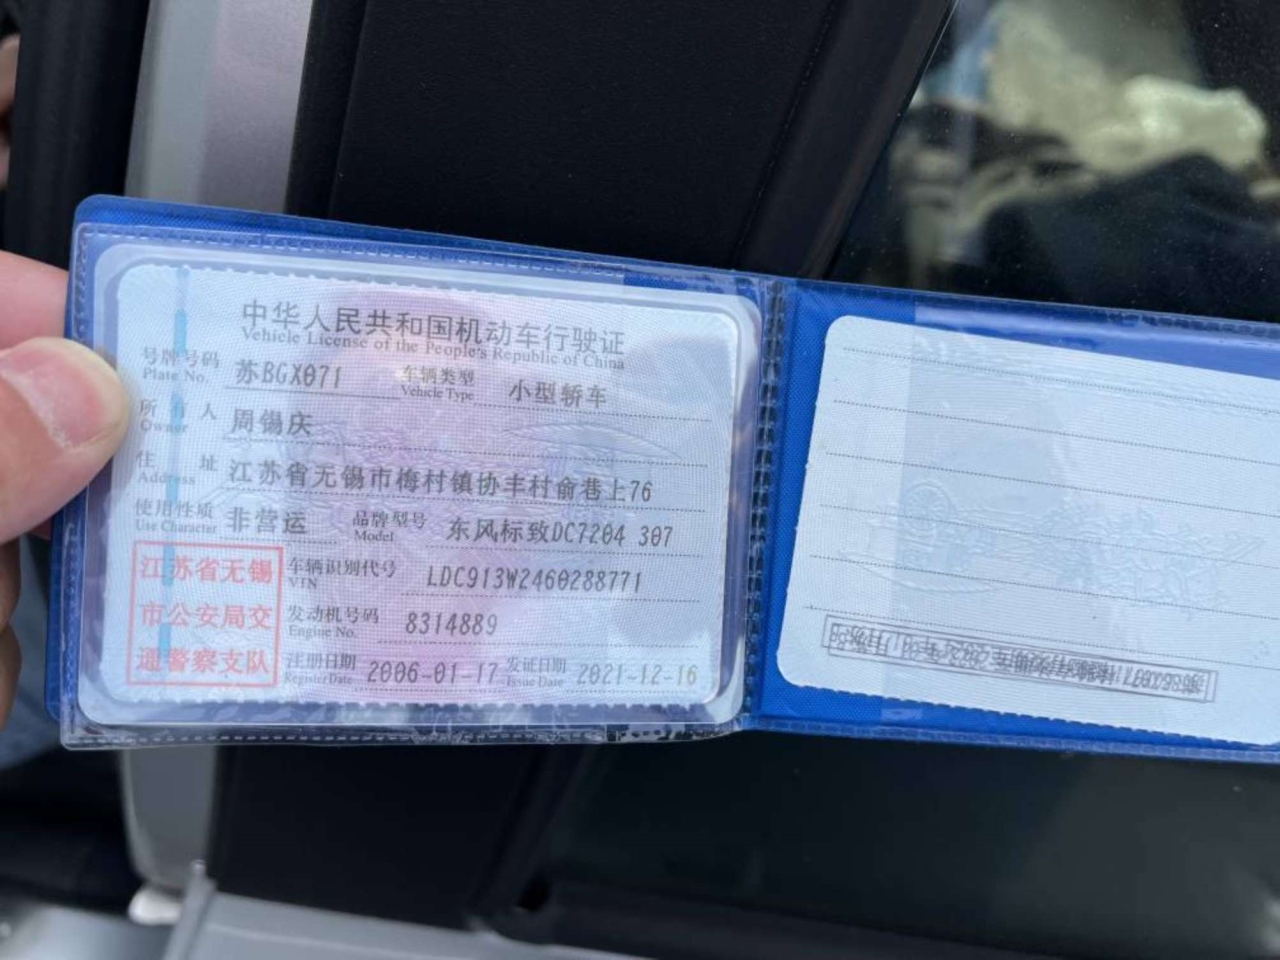 中华人民共和国机动车行驶证
Vehicle License of the People's Republic of China
号牌号码 苏BGX071 车辆类型 小型轿车
Plate No. Vehicle Type
所有人 周锡庆
Owner
住址 江苏省无锡市梅村镇协丰村俞巷上76
Address
使用性质 非营运 品牌型号 东风标致DC7204 307
Use Character Model
江苏省无锡
市公安局交
通警察支队
车辆识别代号 LDC913W2460288771
VIN
发动机号码 8314889
Engine No.
注册日期 2006-01-17 发证日期 2021-12-16
Register Date Issue Date
苏BGX071